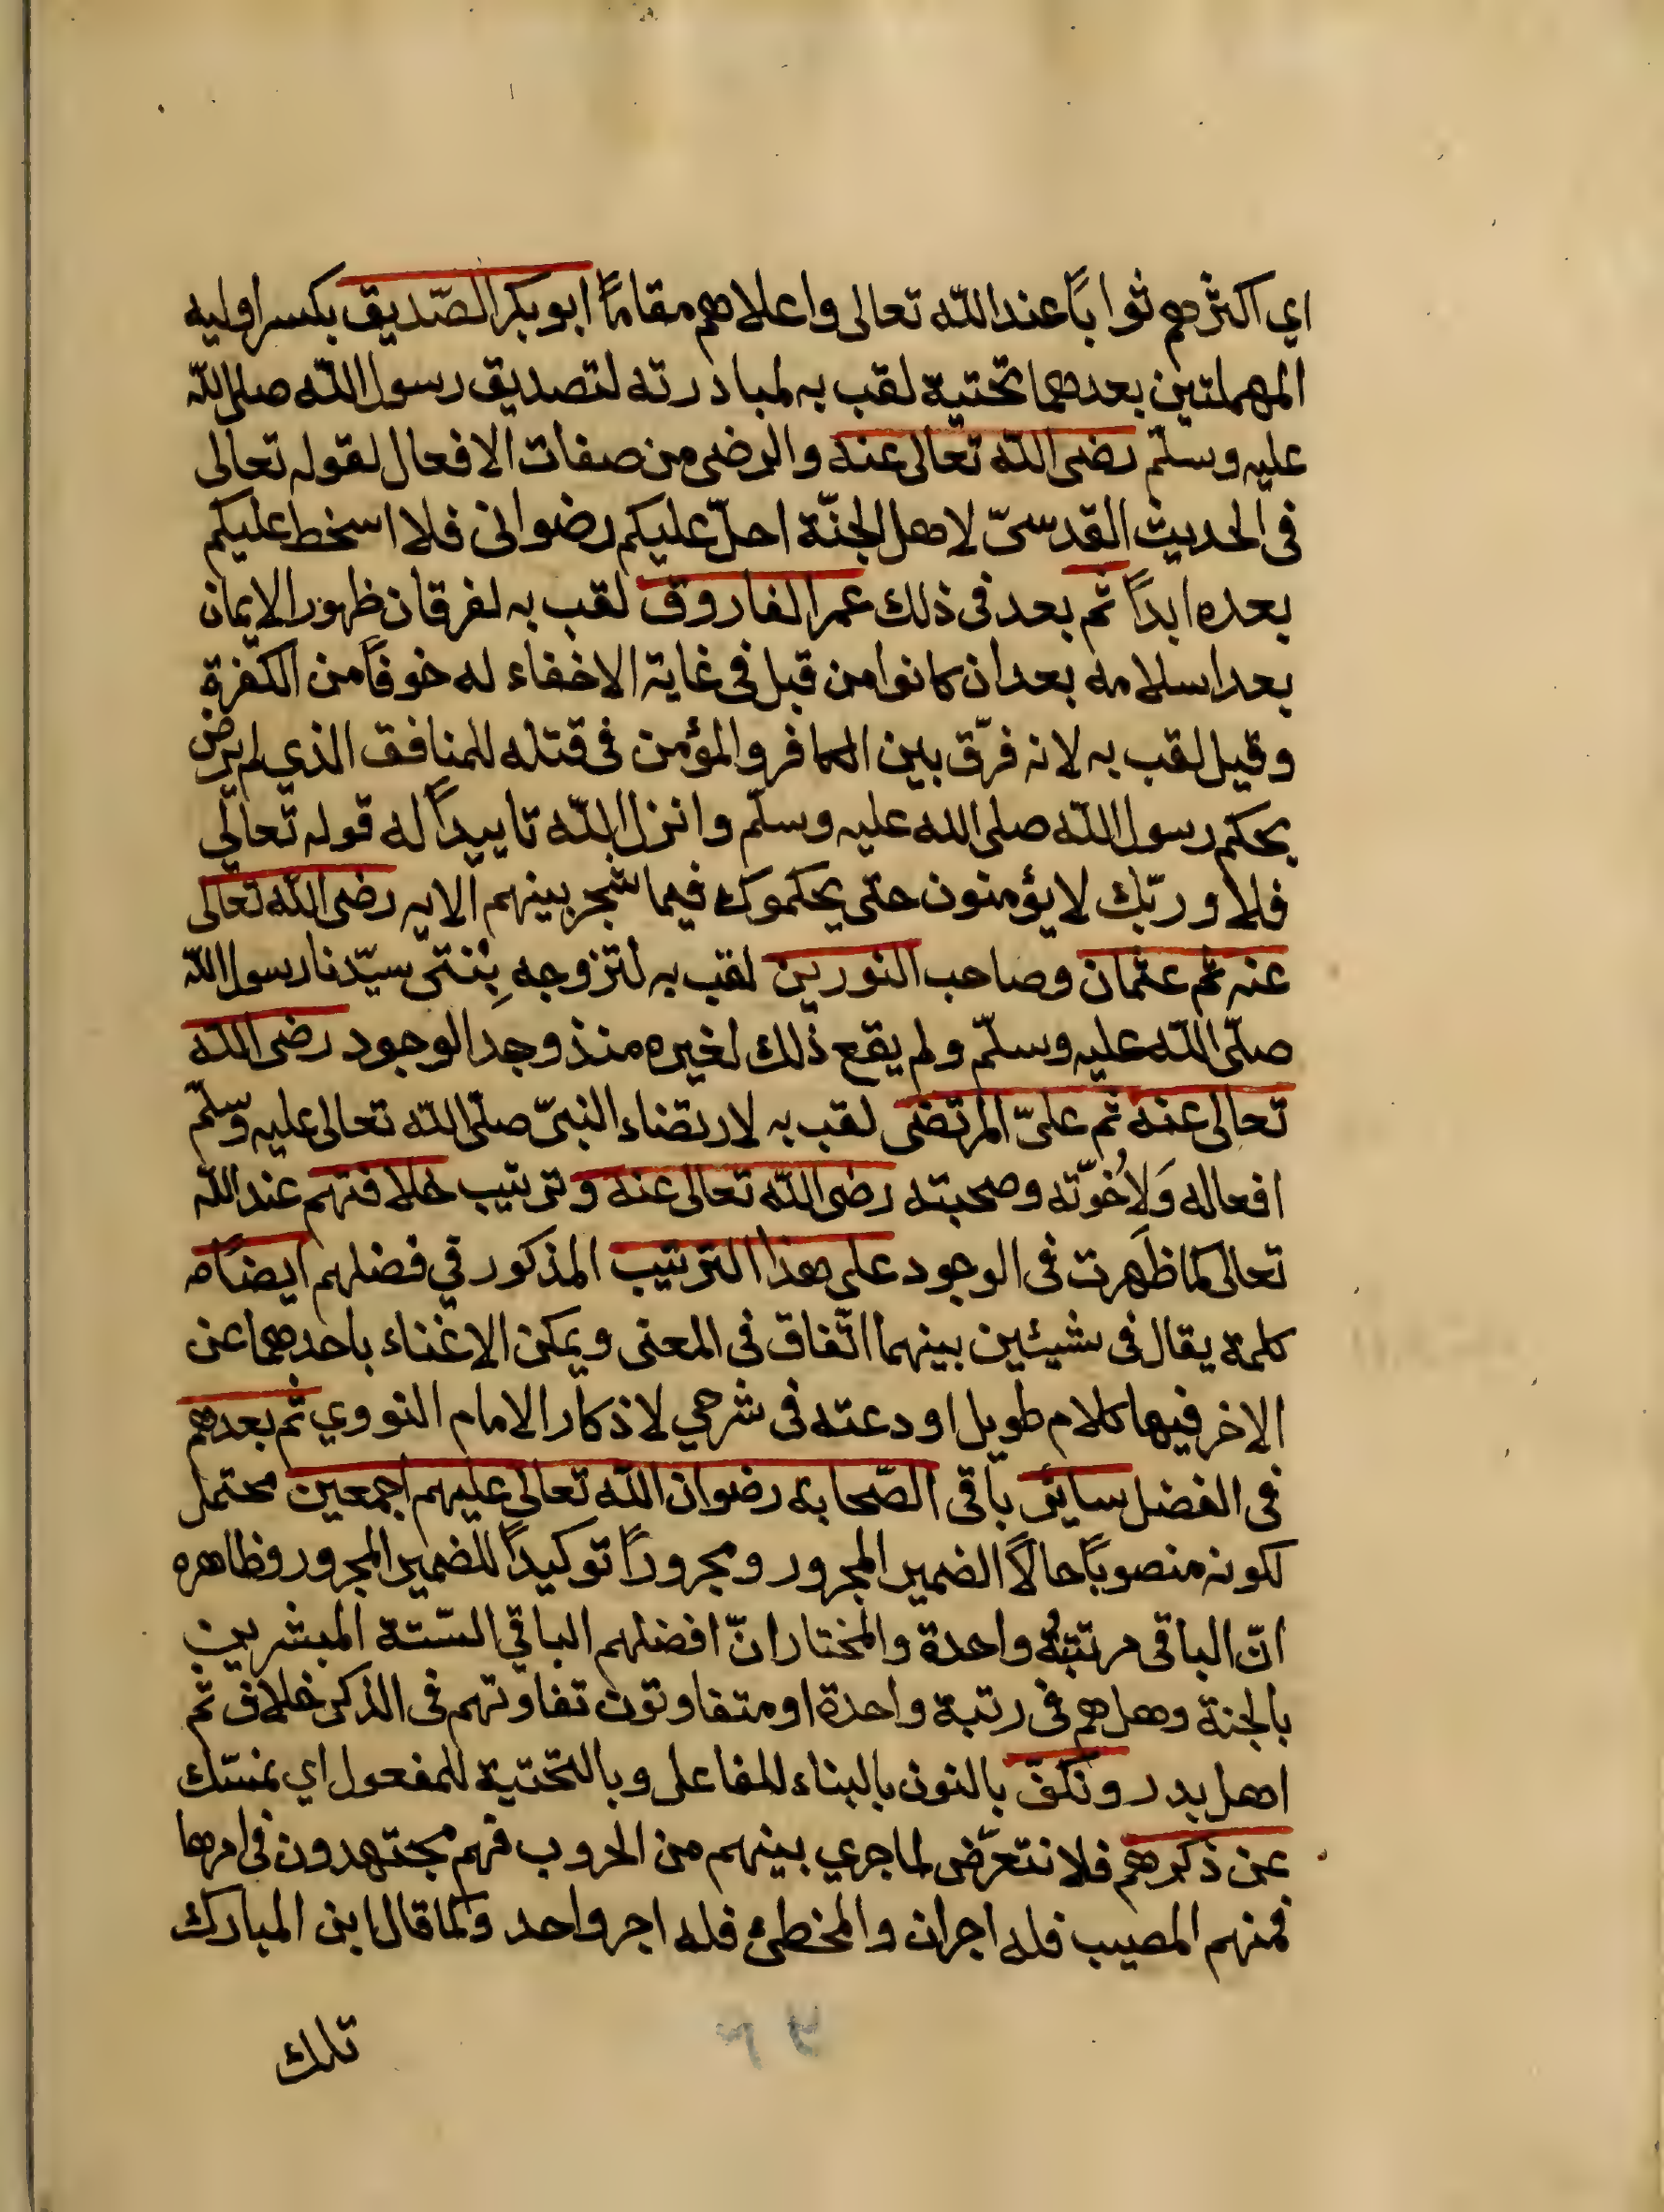 اي اكثرهم ثواباً عند الله تعالى واعلاهم مقاماً ابو بكر الصّديق بكسر اوليه
المهملتين بعدهما تحتية لقب به لمبادرته لتصديق رسول الله صلى الله
عليه وسلّم رضى الله تعالى عنه والرضى من صفات الافعال لقوله تعالى
فى الحديث القدسىّ لاهل الجنّة احلّ عليكم رضوانى فلا اسخط عليكم
بعده ابداً ثم بعد فى ذلك عمر الفاروق لقب به لفرقان ظهور الايمان
بعد اسلامه بعد ان كانوا من قبل فى غاية الاخفاء له خوفاً من الكفرة
وقيل لقب به لانه فرّق بين الكافر والمؤمن فى قتله للمنافق الذي لم يرض
بحكم رسول الله صلى الله عليه وسلّم وانزل الله تاييداً له قوله تعالى
فلا وربّك لا يؤمنون حتى يحكموك فيما شجر بينهم الايه رضى الله تعالى
عنه ثم عثمان وصاحب النورين لقب به لتزوجه بِنتى سيّدنا رسول الله
صلّى الله عليه وسلّم ولم يقع ذلك لغيره منذ وجد الوجود رضى الله
تعالى عنه ثم علىّ المرتضى لقب به لارتضاء النبىّ صلّى الله تعالى عليه وسلّم
افعاله وَلاُخوّته وصحبته رضى الله تعالى عنه وترتيب خلافتهم عند الله
تعالى كما ظَهرت فى الوجود على هذا الترتيب المذكور في فضلهم ايضاً مه
كلمة يقال فى شيئين بينهما اتّفاق فى المعنى ويمكن الاغناء باحدهما عن
الاخر فيها كلام طويل اودعته فى شرحي لاذكار الامام النووي ثم بعدهم
فى الفضل سائر باقى الصّحابه رضوان الله تعالى عليهم اجمعين محتمل
لكونه منصوباً حالاً الضمير المجرور ومجروراً توكيداً للضمير المجرور وظاهره
انّ الباقى مرتبةٌ واحدة والمختار انّ افضلهم الباقي السّتة المبشرين
بالجنة وهل هم فى رتبة واحدة او متفاوتون تفاوتهم فى الذكر خلاف ثم
اهل بدر ونكفّ بالنون بالبناء للفاعل وبالتحتية للمفعول اي نمسّك
عن ذكرهم فلا نتعرّض لما جري بينهم من الحروب فهم مجتهدون فى امرها
فمنهم المصيب فله اجران والمخطئ فله اجر واحد وكما قال ابن المبارك
تلك